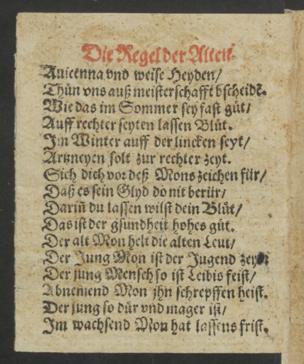 Die Regel der Alten.
Auicenna vnd weise Heyden/
Thůn vns auß meisterschafft bscheidẽ.
Wie das im Sommer sey fast gůt/
Auff rechter seyten lassen Blůt.
Im Winter auff der lincken seyt/
Artzneyen solt zur rechter zeyt.
Sich dich vor deß Mons zeichen für/
Daß es sein Glyd do nit berür/
Dariñ du lassen wilst dein Blůt/
Das ist der gsundheit hohes gůt.
Der alt Mon helt die alten Leut/
Der Jung Mon ist der Jugend zeyt
Der jung Mensch so ist Leibis feist/
Abnemend Mon jhn schrepffen heist.
Der jung so dür vnd mager ist/
Im wachsend Mon hat lassens frist.